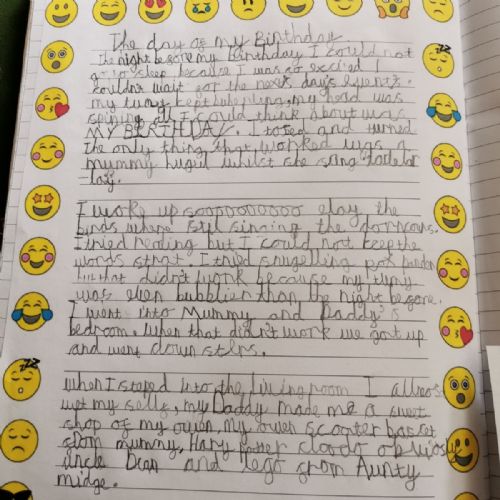 The day of my Birthday
The night before my Birthday I could not
go to sleep because I was so excited I
couldn't wait for the next day's events.
my tumy kept bubbling, my head was
spining all I could think about was
MY BERTHDAY. I tosed and turned
the only thing that worked was a
mummy hugil whilst she sang
lay.
I work up soooooooooo elay the
birds where still singing the
I tried reading but I could not keep the
words strat. I tried snugelling
but that didn't work because my tumy
was even bubblier than the night before.
I went into Mummy and Daddy's
bedroom. When that didn't work we got up
and went down sters.
when I steped into the living room I allmost
wet my selfe, my Daddy made me a sweet
shop of my owen, my owen scooter basket
from mummy, Hary Potter cloods obviosly
uncle Dean and lego from Aunty
midge.